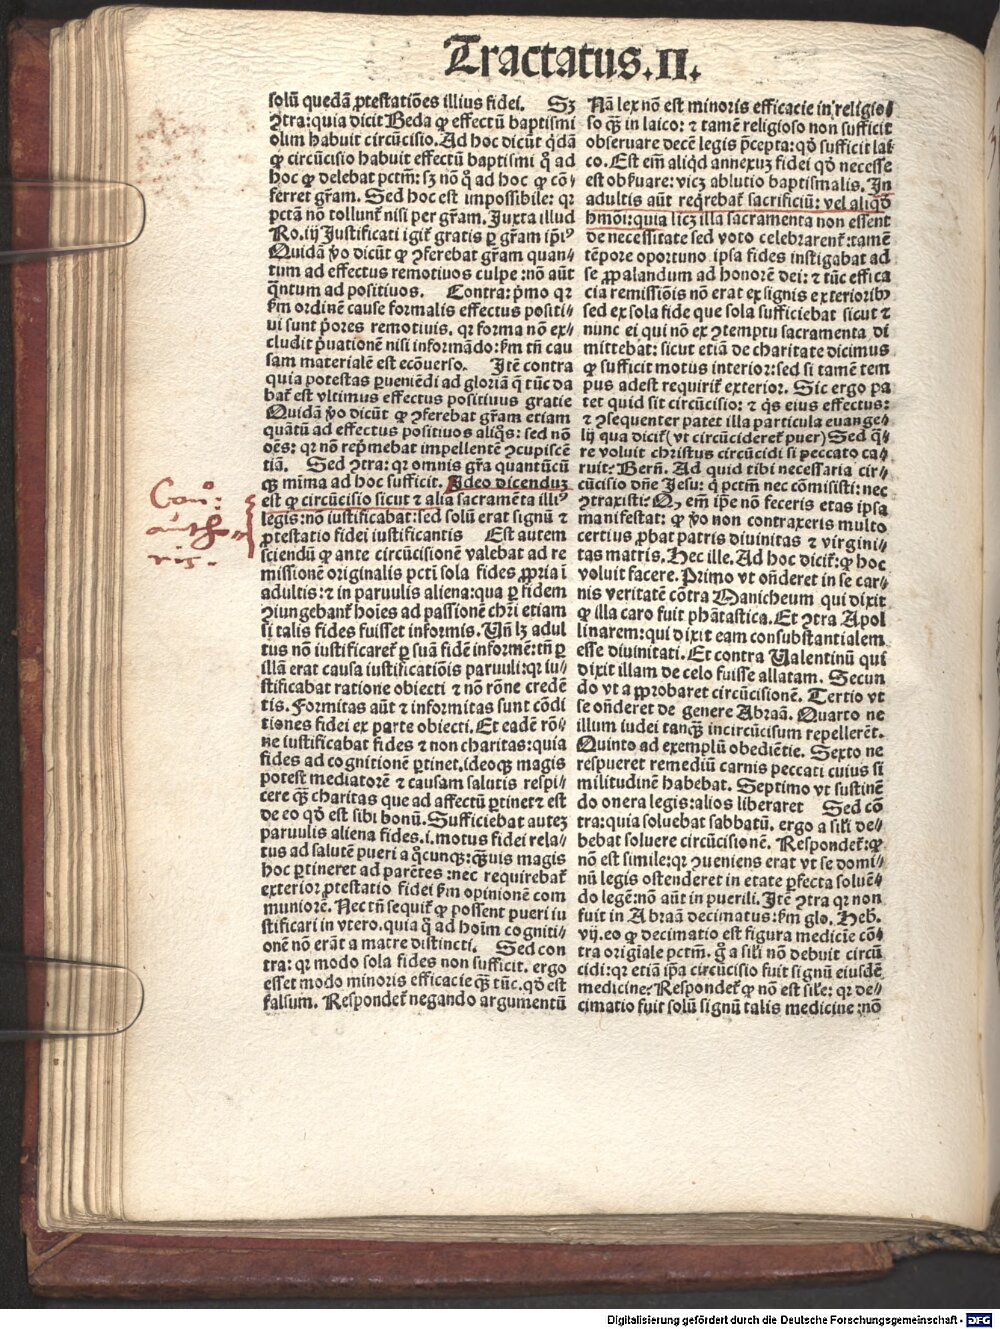 Tractatus.II.
solũ quedã ꝓtestatiões illius fidei. Sꝫ
ꝯtra: quia dicit Beda ꝙ effectũ baptismi
olim habuit circũcisio. Ad hoc dicũt qͥdã
ꝙ circũcisio habuit effectũ baptismi qͣ̃ ad
hoc ꝙ delebat pctm̃: sꝫ nõ qͣ̃ ad hoc ꝙ cõ⸗
ferret gr̃am. Sed hoc est impossibile: qꝛ
pctã nõ tollunt᷑ nisi per gr̃am. Juxta illud
Ro.iij Justificati igit᷑ gratis ꝑ gr̃am ip̃iꝰ
Quidã ꝟo dicũt ꝙ ꝯferebat gr̃am quan⸗
tum ad effectus remotiuos culpe: nõ aũt
qͣntum ad positiuos. Contra: pͥmo qꝛ
ẜm ordinẽ cause formalis effectus positi⸗
ui sunt pͥores remotiuis. qꝛ forma nõ ex⸗
cludit pͥuationẽ nisi informãdo: ẜm tñ cau
sam materialẽ est ecõuerso. Itẽ contra
quia potestas ꝑueniẽdi ad gloriã q̃ tũc da
bat᷑ est vltimus effectus positiuus gratie
Quidã ꝟo dicũt ꝙ ꝯferebat gr̃am etiam
quãtũ ad effectus positiuos aliqͦs: sed nõ
oẽs: qꝛ nõ rep̃mebat impellentẽ ꝯcupiscẽ
tiã. Sed ꝯtra: qꝛ omnis gr̃a quantũcũ
qꝫ mĩma ad hoc sufficit. Ideo dicenduꝫ
est ꝙ circũcisio sicut ⁊ alia sacramẽta illiꝰ
legis: nõ iustificabat: sed solũ erat signũ ⁊
ꝓtestatio fidei iustificantis Est autem
sciendũ ꝙ ante circũcisionẽ valebat ad re
missionẽ originalis pcti sola fides ꝓpria ĩ
adultis: ⁊ in paruulis aliena: qua ꝑ fidem
ꝯiungebant᷑ hoĩes ad passionẽ chr̃i etiam
si talis fides fuisset informis. Vñ lꝫ adul
tus nõ iustificaret᷑ ꝑ suã fidẽ informẽ: tñ ꝑ
illã erat causa iustificatiõis paruuli: qꝛ iu⸗
stificabat ratione obiecti ⁊ nõ rõne credẽ
tis. Formitas aũt ⁊ informitas sunt cõdi
tiones fidei ex parte obiecti. Et eadẽ rõ⸗
ne iustificabat fides ⁊ non charitas: quia
fides ad cognitionẽ ꝑtinet. ideoqꝫ magis
potest mediatorẽ ⁊ causam salutis respi⸗
cere qͣꝫ charitas que ad affectũ ꝑtinet ⁊ est
de eo qd̃ est sibi bonũ. Sufficiebat auteꝫ
paruulis aliena fides.i. motus fidei rela⸗
tus ad salutẽ pueri a qͦcunqꝫ: qͣꝫuis magis
hoc ꝑtineret ad parẽtes: nec requirebat᷑
exterior ꝓtestatio fidei ẜm opinionẽ com
muniorẽ. Nec tñ sequit᷑ ꝙ possent pueri iu
stificari in vtero. quia qͣ̃ ad hoĩm cogniti⸗
onẽ nõ erãt a matre distincti. Sed con
tra: qꝛ modo sola fides non sufficit. ergo
esset modo minoris efficacie qͣꝫ tũc. qd̃ est
falsum. Respondet᷑ negando argumentũ
Nã lex nõ est minoris efficacie in religio⸗
so qͣꝫ in laico: ⁊ tamẽ religioso non sufficit
obseruare decẽ legis p̃cepta: qd̃ sufficit lai
co. Est em̃ aliqͥd annexuꝫ fidei qd̃ necesse
est obẜuare: vicꝫ ablutio baptismalis. In
adultis aũt reqͥrebat᷑ sacrificiũ: vel aliqͥd
hm̃õi: quia licꝫ illa sacramenta non essent
de necessitate sed voto celebrarent᷑: tamẽ
tẽpore oportuno ipsa fides instigabat ad
se ꝓpalandum ad honorẽ dei: ⁊ tũc effica
cia remissiõis nõ erat ex signis exterioribꝰ
sed ex sola fide que sola sufficiebat sicut ⁊
nunc ei qui nõ ex ꝯtemptu sacramenta di
mittebat: sicut etiã de charitate dicimus
ꝙ sufficit motus interior: sed si tamẽ tem
pus adest requirit᷑ exterior. Sic ergo pa
tet quid sit circũcisio: ⁊ qͥs eius effectus:
⁊ ꝯsequenter patet illa particula euange⸗
lij qua dicit᷑ (vt circũcideret᷑ puer) Sed qͣ⸗
re voluit christus circũcidi si peccato ca⸗
ruit: Berñ. Ad quid tibi necessaria cir⸗
cũcisio dñe Jesu: q̃ pctm̃ nec cõmisisti: nec
ꝯtraxisti: Qꝫ em̃ ip̃e nõ feceris etas ipsa
manifestat: ꝙ ꝟo non contraxeris multo
certius ꝓbat patris diuinitas ⁊ virgini⸗
tas matris. Hec ille. Ad hoc dicit᷑: ꝙ hoc
voluit facere. Primo vt oñderet in se car⸗
nis veritatẽ cõtra Manicheum qui dixit
ꝙ illa caro fuit phãtastica. Et ꝯtra Apol
linarem: qui dixit eam consubstantialem
esse diuinitati. Et contra Ualentinũ qui
dixit illam de celo fuisse allatam. Secun
do vt approbaret circũcisionẽ. Tertio vt
se oñderet de genere Abraã. Quarto ne
illum iudei tanqͣꝫ incircũcisum repellerẽt.
Quinto ad exemplũ obediẽtie. Sexto ne
respueret remediũ carnis peccati cuius si
militudinẽ habebat. Septimo vt sustinẽ
do onera legis: alios liberaret Sed cõ
tra: quia soluebat sabbatũ. ergo a sil̃i de⸗
bebat soluere circũcisionẽ. Respondet᷑: ꝙ
nõ est simile: qꝛ ꝯueniens erat vt se domi⸗
nũ legis ostenderet in etate ꝑfecta soluẽ⸗
do legẽ: nõ aũt in puerili. Itẽ ꝯtra qꝛ non
fuit in Abraã decimatus: ẜm glo. Heb.
vij. eo ꝙ decimatio est figura medicĩe cõ⸗
tra origĩale pctm̃. g̊ a sil̃i nõ debuit circũ
cidi: qꝛ etiã ip̃a circũcisio fuit signũ eiusdẽ
medicine: Respondet᷑ ꝙ nõ est sil̃e: qꝛ de⸗
cimatio fuit solũ signũ talis medicine: nõ
Digitalisierung gefördert durch die Deutsche Forschungsgemeinschaft - DFG